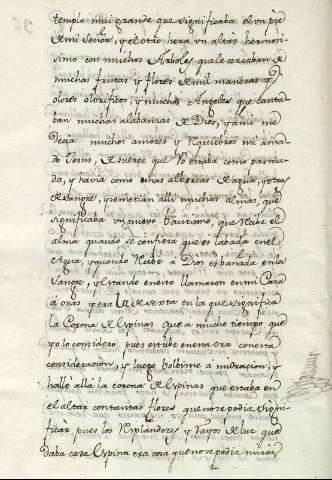 templo mui grande que significaba el un pie
de mi Señor, y el otro hera un altar hermosi-
simo con muchos Arboles que le cercaban de
muchas frutas y flores de mil maneras y
olores olorificos, y muchos Angeles que canta-
ban muchas alabanzas a Dios, y a mi me
decia muchos amores y requiebros mi ama-
do Jesus, de suerte que yo estaba como pasma-
da, y havia como unas albercas de agua, y otras
de sangre, y se metian alli muchas almas, que
significaba un nuevo Bautismo, que recibe el
alma quando se confiesa que es labada en el
Agua, y quando recibe a Dios es bañada en la
sangre, y estando en esto llamaron en mi Casa
a orar y era la de sexta en la que significa
la Corona de Espinas que a mucho tiempo que
yo lo considero pues estube en esta ora con esta
consideracion, y luego bolbime a mi oracion, y
halle alla la corona de Espinas que estaba en
el altar con tantas flores que no se podia signi-
ficar pues los resplandores y rayos de luz que
daba cada Espina era cosa que no se podia mirar